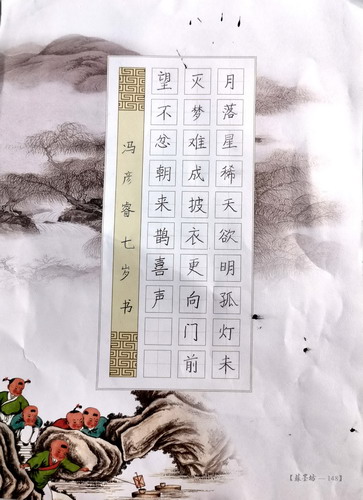 月落星稀天欲明孤灯未
灭梦难成披衣更向门前
望不忿朝来鹊喜声
冯彦睿七岁书
【蘇墨坊—148】